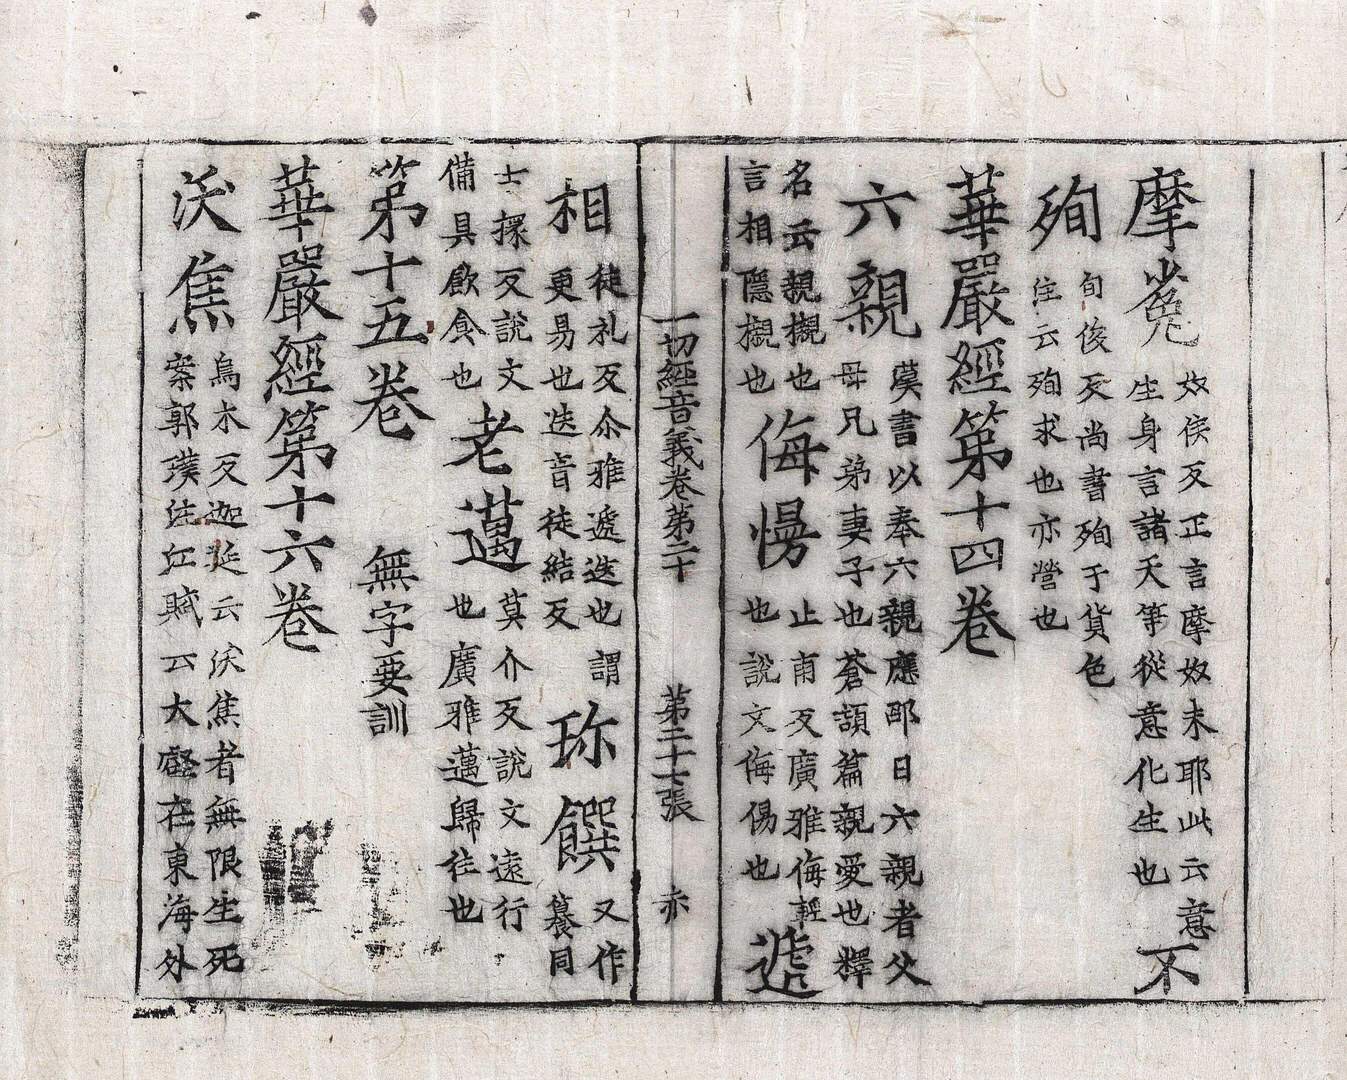 摩㝹奴侯反正言摩奴末耶此云意
生身言諸天等從意化生也不
殉旬俊反尚書殉于貨色
注云殉求也亦營也
華嚴經第十四卷
六親漢書以奉六親應邵曰六親者父
母兄弟妻子也蒼頡篇親愛也釋
名云親櫬也
言相隱櫬也
侮慢亡甫反廣雅侮輕
也說文侮傷也遞
一切經音義卷第二十　第二十七張　赤
相徒礼反尒雅遞迭也謂
更易也迭音徒結反
珎饌又作
籑同
士反說文
備具飲食也
老邁莫介反說文遠行
也廣雅邁歸往也
第十五卷　無字要訓
華嚴經第十六卷
沃焦烏木反迦延云沃焦者無限生死
案郭璞注江賦云大壑在東海外